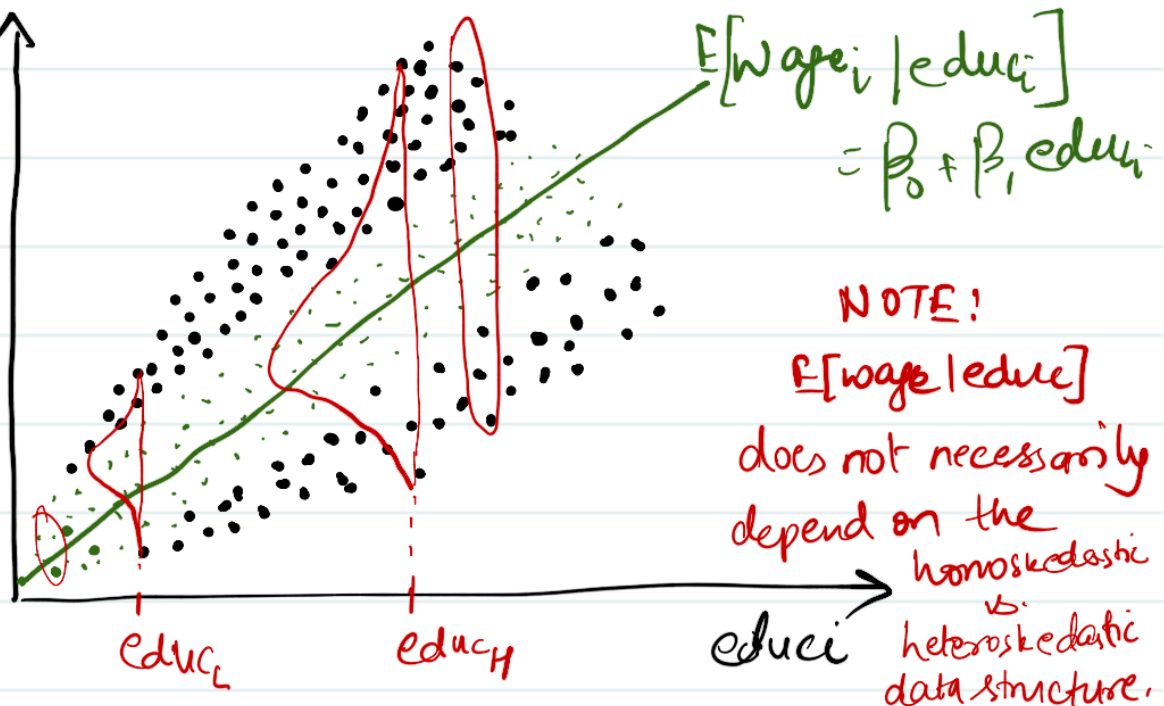 E[wageᵢ | educᵢ]
= β₀ + β₁ educᵢ
NOTE!
E[wage | educ]
does not necessarily
depend on the
homoskedastic
vs.
heteroskedastic
data structure.
educ_L
educ_H
educi